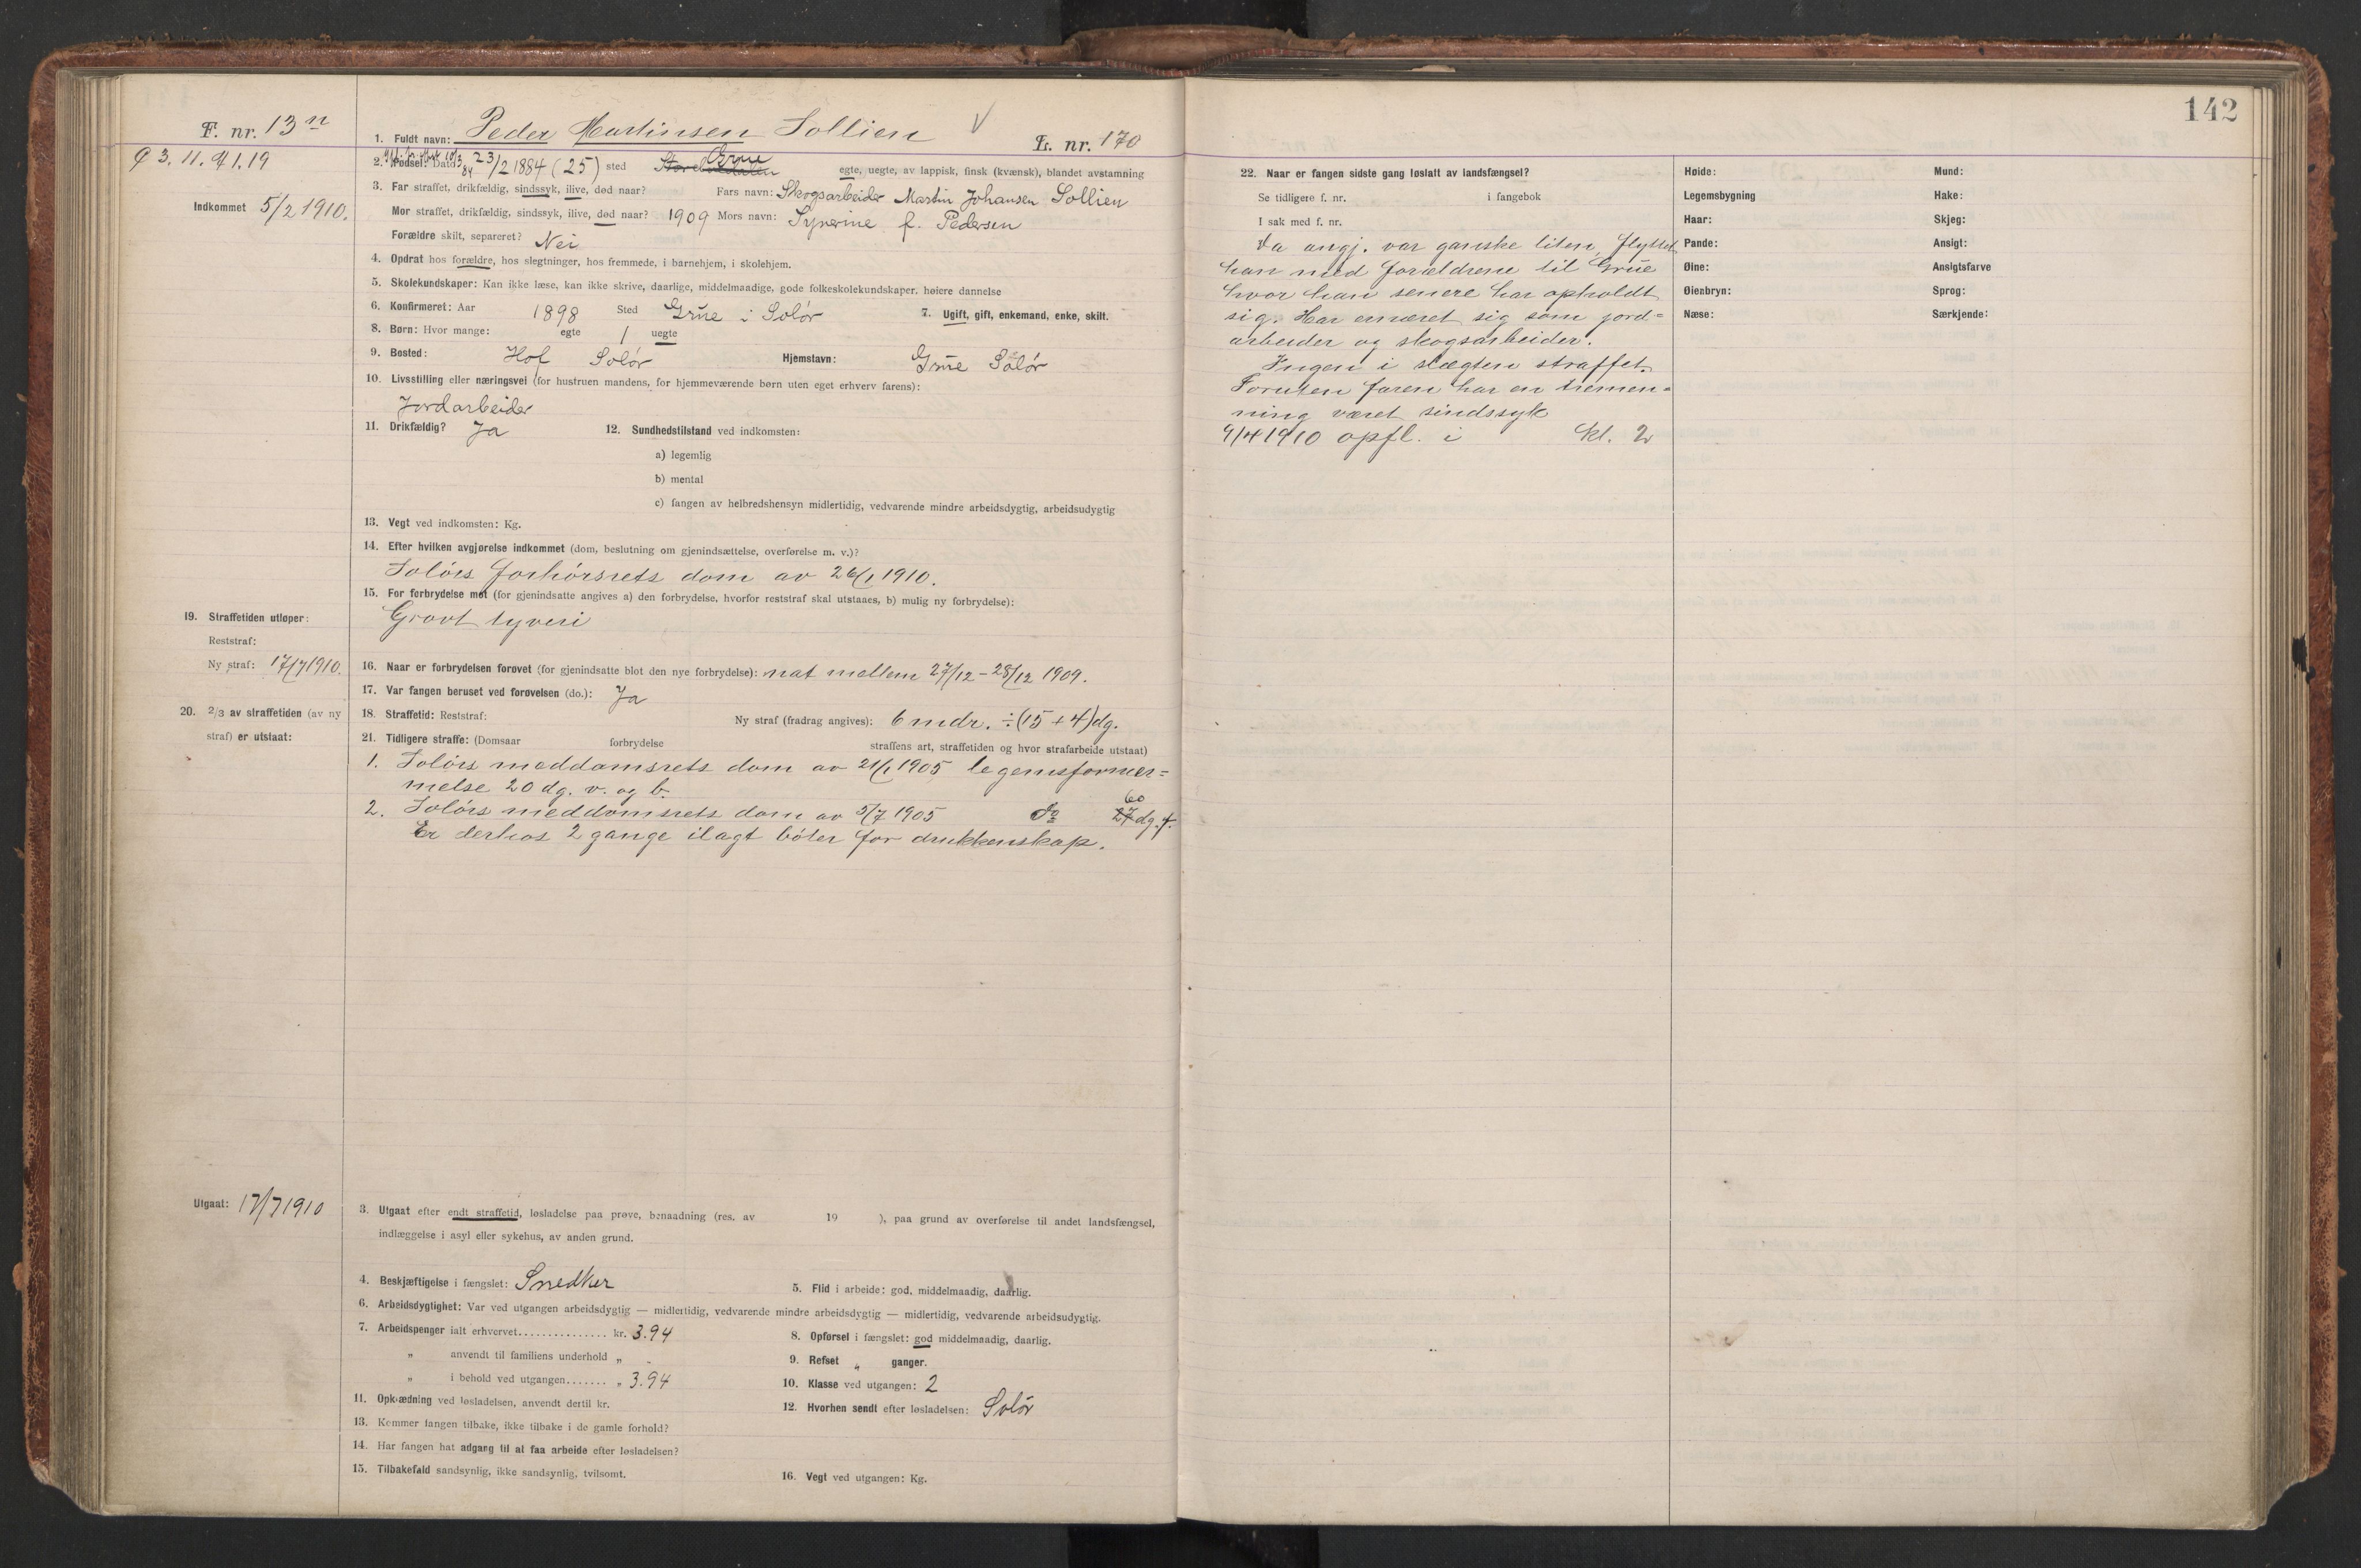 F. nr. 13 n
1. Fuldt navn: Peder Martinsen Sollien V L. nr. 170
93. 11. 41. 19
2. Fødsel: Dato 23/2 1884 (25) sted Grue egte, uegte, av lappisk, finsk (kvænsk), blandet avstamning
Indkommet 5/2 1910.
3. Far straffet, drikfældig, sindssyk, ilive, død naar? Fars navn: Skogsarbeider Martin Johansen Sollien
Mor straffet, drikfældig, sindssyk, ilive, død naar? 1909 Mors navn: Synerine f. Pedersen
Forældre skilt, separeret? Nei
4. Opdrat hos forældre, hos slegtninger, hos fremmede, i barnehjem, i skolehjem.
5. Skolekundskaper: Kan ikke læse, kan ikke skrive, daarlige, middelmaadige, gode folkeskolekundskaper, høiere dannelse
6. Konfirmeret: Aar 1898 Sted Grue i Solør 7. Ugift, gift, enkemand, enke, skilt.
8. Børn: Hvor mange: egte 1 uegte
9. Bosted: Hof Solør Hjemstavn: Grue Solør
10. Livsstilling eller næringsvei (for hustruen mandens, for hjemmeværende børn uten eget erhverv farens):
Jordarbeider
11. Drikfældig? Ja 12. Sundhedstilstand ved indkomsten:
a) legemlig
b) mental
c) fangen av helbredshensyn midlertidig, vedvarende mindre arbeidsdygtig, arbeidsudygtig
13. Vegt ved indkomsten: Kg.
14. Efter hvilken avgjørelse indkommet (dom, beslutning om gjenindsættelse, overførelse m. v.)?
Solørs forhørsrets dom av 26/1 1910.
15. For forbrydelse mot (for gjenindsatte angives a) den forbrydelse, hvorfor reststraf skal utstaaes, b) mulig ny forbrydelse):
Grovt tyveri
19. Straffetiden utløper:
Reststraf:
Ny straf: 17/7 1910.
16. Naar er forbrydelsen forøvet (for gjenindsatte blot den nye forbrydelse): nat mellem 27/12 - 28/12 1909.
17. Var fangen beruset ved forøvelsen (do.): Ja
20. 2/3 av straffetiden (av ny
straf) er utstaat:
18. Straffetid: Reststraf: Ny straf (fradrag angives): 6 mdr. ÷ (15 + 4) dg.
21. Tidligere straffe: (Domsaar forbrydelse straffens art, straffetiden og hvor strafarbeide utstaat)
1. Solørs meddomsrets dom av 21/1 1905 legemsfornær=
melse 20 dg. v. og b.
2. Solørs meddomsrets dom av 5/7 1905 do 60 27 dg. f.
Er derhos 2 gange ilagt bøter for drukkenskap.
Utgaat: 17/7 1910
3. Utgaat efter endt straffetid, løsladelse paa prøve, benaadning (res. av 19 ), paa grund av overførelse til andet landsfængsel,
indlæggelse i asyl eller sykehus, av anden grund.
4. Beskjæftigelse i fængslet: Snedker 5. Flid i arbeide: god, middelmaadig, daarlig.
6. Arbeidsdygtighet: Var ved utgangen arbeidsdygtig — midlertidig, vedvarende mindre arbeidsdygtig — midlertidig, vedvarende arbeidsudygtig.
7. Arbeidspenger ialt erhvervet............... kr. 3.94 8. Opførsel i fængslet: god middelmaadig, daarlig.
„ anvendt til familiens underhold „ 9. Refset „ ganger.
„ i behold ved utgangen....... „ 3.94 10. Klasse ved utgangen: 2
11. Opklædning ved løsladelsen, anvendt dertil kr. 12. Hvorhen sendt efter løsladelsen: Solør
13. Kommer fangen tilbake, ikke tilbake i de gamle forhold?
14. Har fangen hat adgang til at faa arbeide efter løsladelsen?
15. Tilbakefald sandsynlig, ikke sandsynlig, tvilsomt. 16. Vegt ved utgangen: Kg.
142
22. Naar er fangen sidste gang løslatt av landsfængsel?
Se tidligere f. nr. i fangebok
I sak med f. nr.
Da angj. var ganske liten, flyttet
han med forældrene til Grue
hvor han senere har opholdt
sig. Har ernæret sig som jord=
arbeider og skogsarbeider.
Ingen i slægten straffet.
Foruten faren har en tremen=
ning været sindssyk
9/4 1910 opfl. i kl. 2
Høide: Mund:
Legemsbygning Hake:
Haar: Skjeg:
Pande: Ansigt:
Øine: Ansigtsfarve
Øienbryn: Sprog:
Næse: Særkjende: